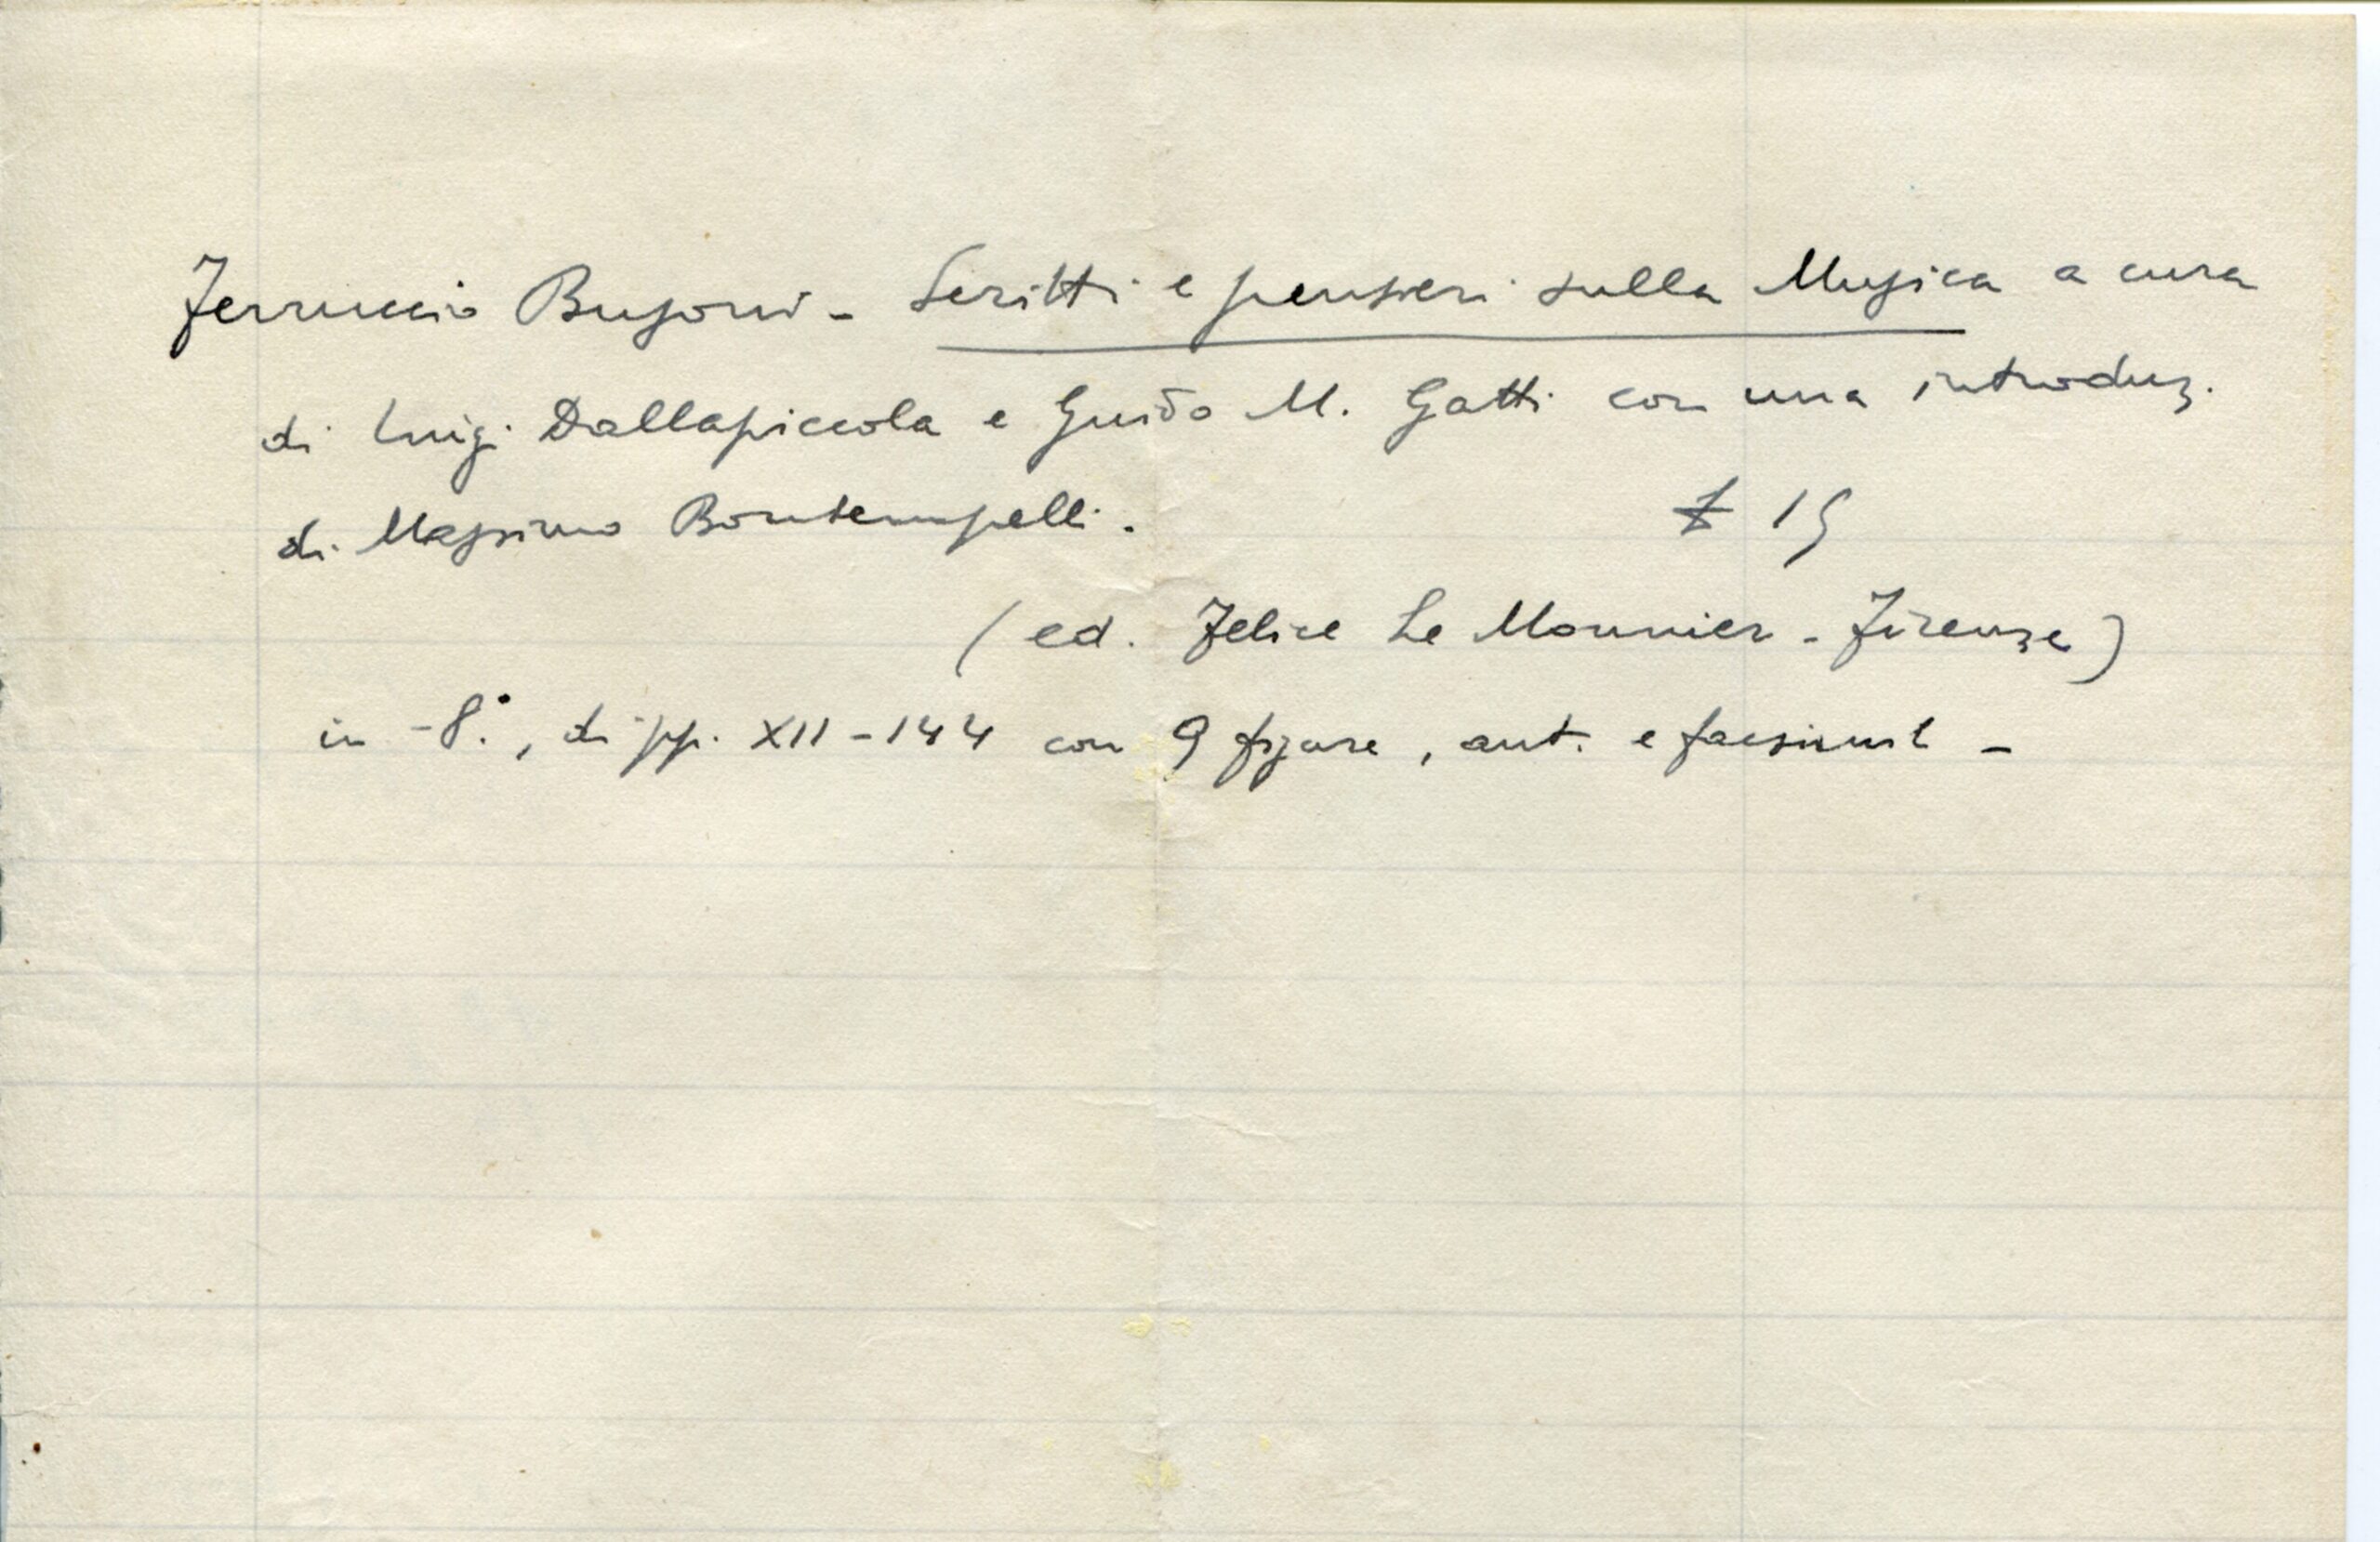 Ferruccio Busoni - Scritti e pensieri sulla Musica a cura
di Luigi Dallapiccola e Guido M. Gatti con una introduz.
di Massimo Bontempelli. £ 15
(ed. Felice Le Monnier - Firenze)
in -8°., di pp. XII - 144 con 9 figure, aut. e facsimili -